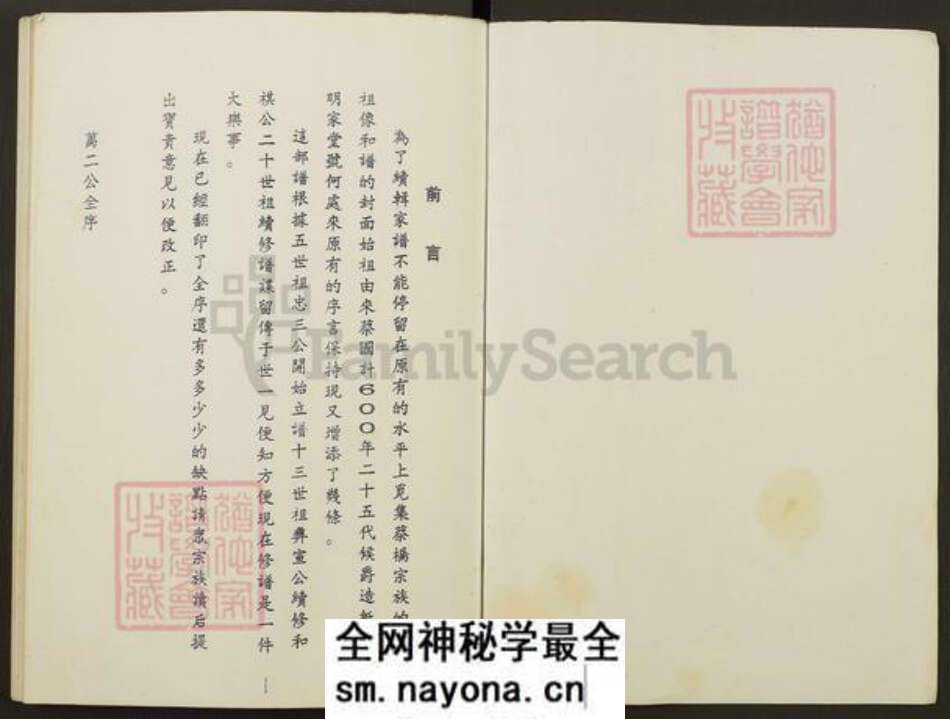 前言
為了續輯家譜不能停留在原有的水平上覓集蔡橋宗族的
祖像和譜的封面始祖由來蔡國計600年二十五代候爵造
明家堂號何處來原有的序言保持現又增添了幾條。
這部譜根據五世祖忠三公開始立譜十三世祖彝宣公續修和
祺公二十世祖續修譜諜留傳于世一見便知方便現在修譜是一件
大樂事。
現在已經翻印了全序還有多多少少的缺點請眾宗族讀后提
出寶貴意見以便改正。
萬二公全序
FamilySearch
全网神秘学最全
sm.nayona.cn